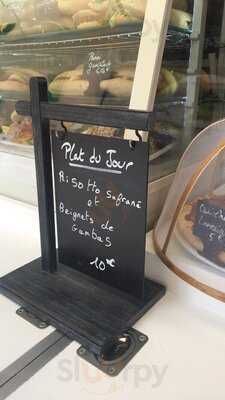 Plat du Jour
Risotto Safrané
et
Beignets de
Gambas
10€
5€
Slurpy